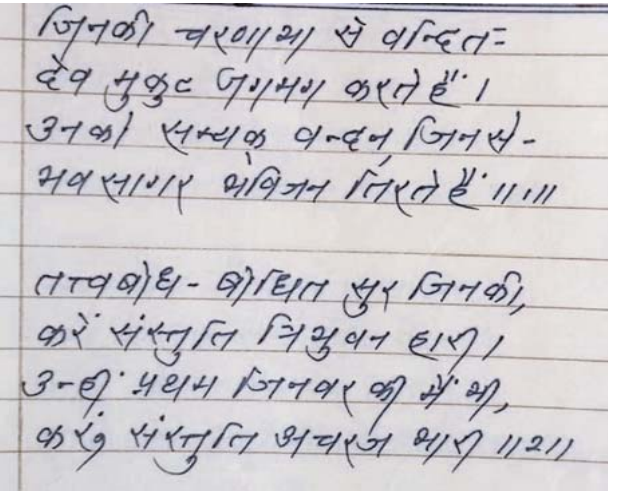 जिनकी चरणाभा से वन्दित-
देव मुकुट जगमग करते हैं ।
उनका सम्यक वन्दन जिनसे-
भवसागर भविजन तिरते हैं ॥१॥
तत्त्वबोध - बोधित सुर जिनकी,
करें संस्तुति त्रिभुवन हारी ।
उन्हीं प्रथम जिनवर की मैं भी,
करूं संस्तुति अचरज भारी ॥२॥